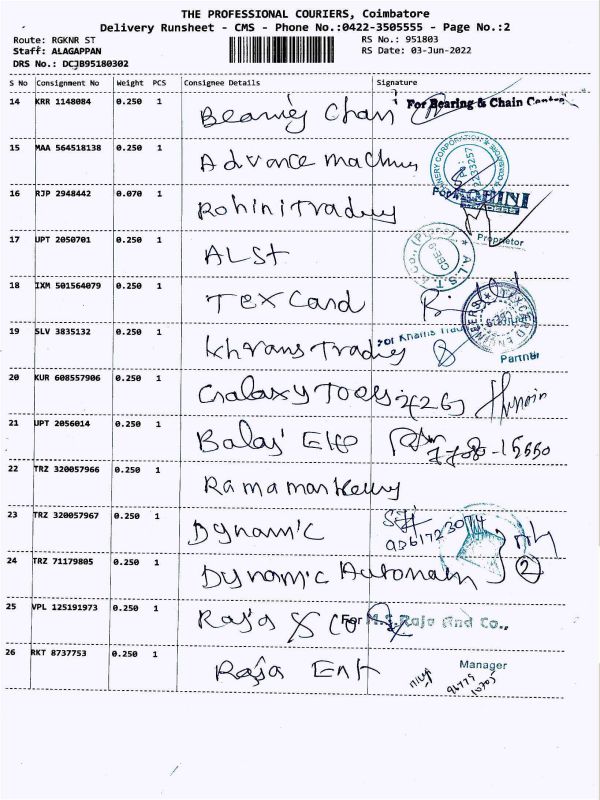 THE PROFESSIONAL COURIERS, Coimbatore
Delivery Runsheet - CMS - Phone No.:0422-3505555 - Page No.:2
Route: RGKNR ST RS No.: 951803
Staff: ALAGAPPAN RS Date: 03-Jun-2022
DRS No.: DCJB95180302
S No Consignment No Weight PCS Consignee Details Signature
14 KRR 1148084 0.250 1 For Bearing & Chain
Chan
15 MAA 564518138 0.250 1
Advance
16 RJP 2948442 0.070 1 ROHINI
Rohini
Proprietor
17 UPT 2050701 0.250 1
ALSt
18 IXM 501564079 0.250 1
Tex Card
19 SLV 3835132 0.250 1 For
Partner
20 KUR 608557906 0.250 1
Galaxy Tools
21 UPT 2056014 0.250 1
Balaji
22 TRZ 320057966 0.250 1
23 TRZ 320057967 0.250 1
Dynamic
24 TRZ 71179805 0.250 1
Dynamic 2
25 VPL 125191973 0.250 1
Raja & Co For M.S.Raja And Co.,
26 RKT 8737753 0.250 1 Manager
Raja Ent